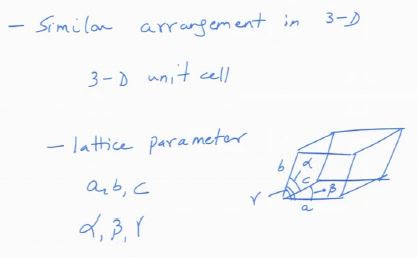 - Similar arrangement in 3-D
3-D unit cell
- lattice parameter
a, b, c
α, β, γ
b α c β
γ a